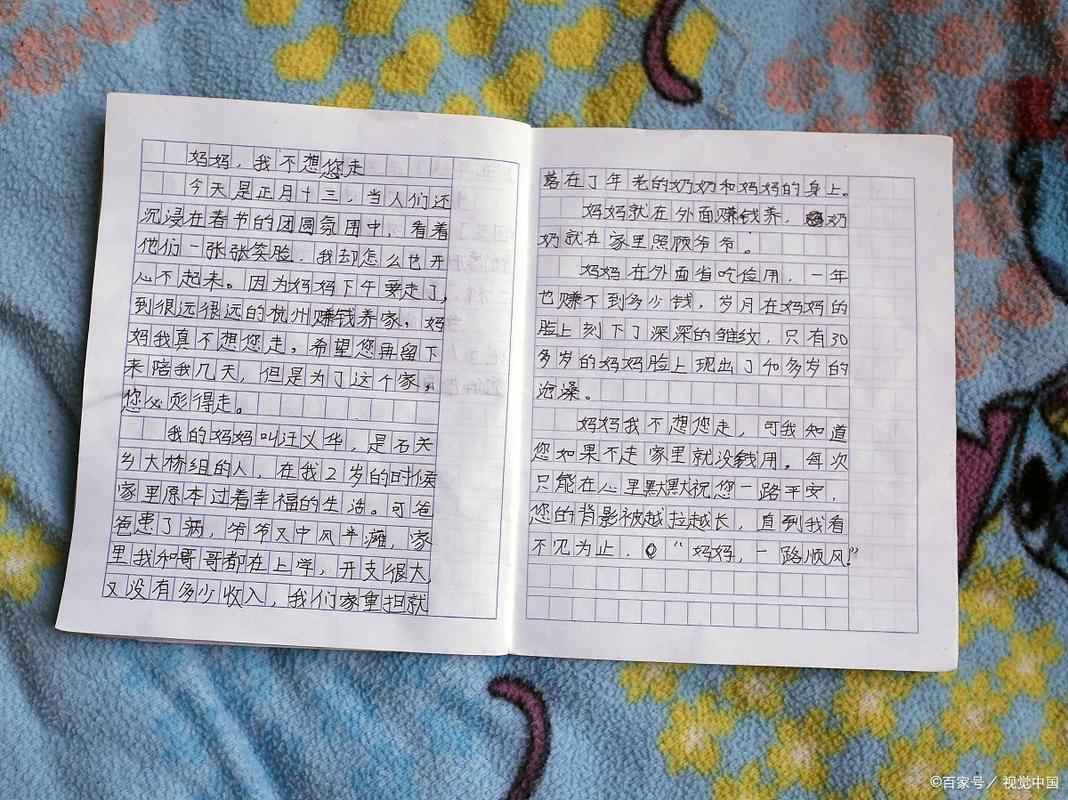 妈妈，我不想您走
今天是正月十三，当人们还
沉浸在春节的团圆氛围中，看着
他们一张张笑脸，我却怎么也开
心不起来。因为妈妈下午要走了，
到很远很远的杭州赚钱养家，妈
妈我真不想您走。希望您再留下
来陪我几天，但是为了这个家，
您必须得走。
我的妈妈叫汪义华，是石关
乡大桥组的人，在我2岁的时候
家里原本过着幸福的生活。可爸
爸患了病，爷爷又中风半瘫，家
里我和哥哥都在上学，开支很大，
又没有多少收入，我们家重担就
落在了年老的奶奶和妈妈的身上。
妈妈就在外面赚钱养，奶
奶就在家里照顾爷爷。
妈妈在外面省吃俭用，一年
也赚不到多少钱，岁月在妈妈的
脸上刻下了深深的皱纹，只有30
多岁的妈妈脸上现出了40多岁的
沧桑。
妈妈我不想您走，可我知道
您如果不走家里就没钱用。每次
只能在心里默默祝您一路平安，
您的背影被越拉越长，直到我看
不见为止，“妈妈，一路顺风！”
©百家号／视觉中国